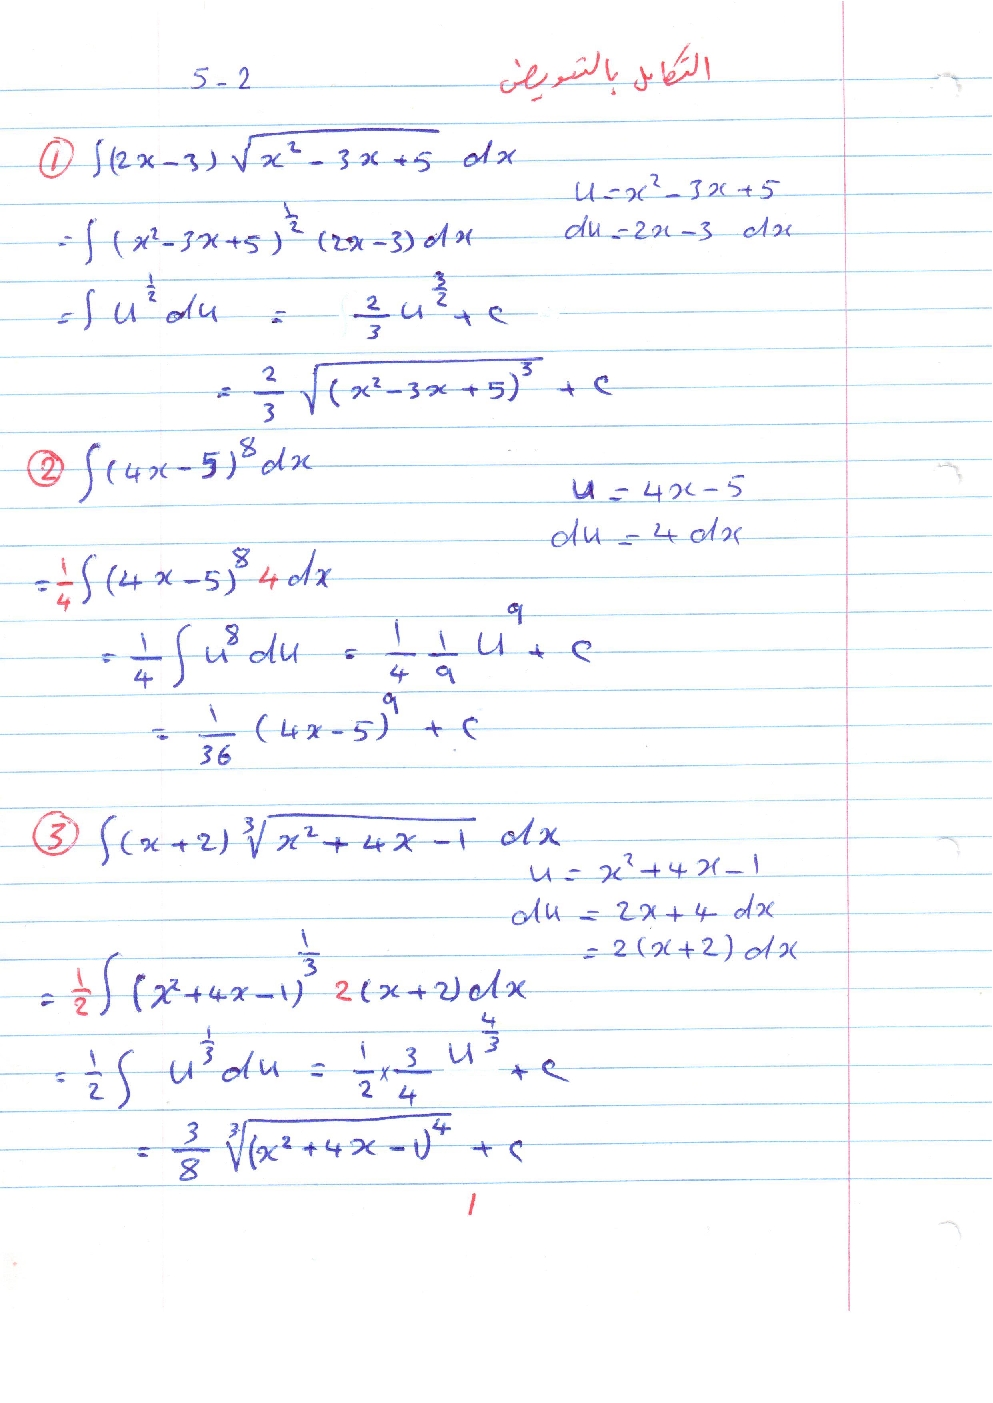 التكامل بالتعويض 5-2
① ∫(2x-3) √(x²-3x+5) dx
u = x²-3x+5
= ∫ (x²-3x+5)^(1/2) (2x-3) dx
du = 2x-3 dx
= ∫ u^(1/2) du = 2/3 u^(3/2) + c
= 2/3 √((x²-3x+5)³) + c
② ∫(4x-5)⁸ dx
u = 4x-5
du = 4 dx
= 1/4 ∫ (4x-5)⁸ 4 dx
= 1/4 ∫ u⁸ du = 1/4 1/9 u⁹ + c
= 1/36 (4x-5)⁹ + c
③ ∫(x+2) ∛(x²+4x-1) dx
u = x²+4x-1
du = 2x+4 dx
= 2(x+2) dx
= 1/2 ∫ (x²+4x-1)^(1/3) 2(x+2) dx
= 1/2 ∫ u^(1/3) du = 1/2 × 3/4 u^(4/3) + c
= 3/8 ∛((x²+4x-1)⁴) + c
1